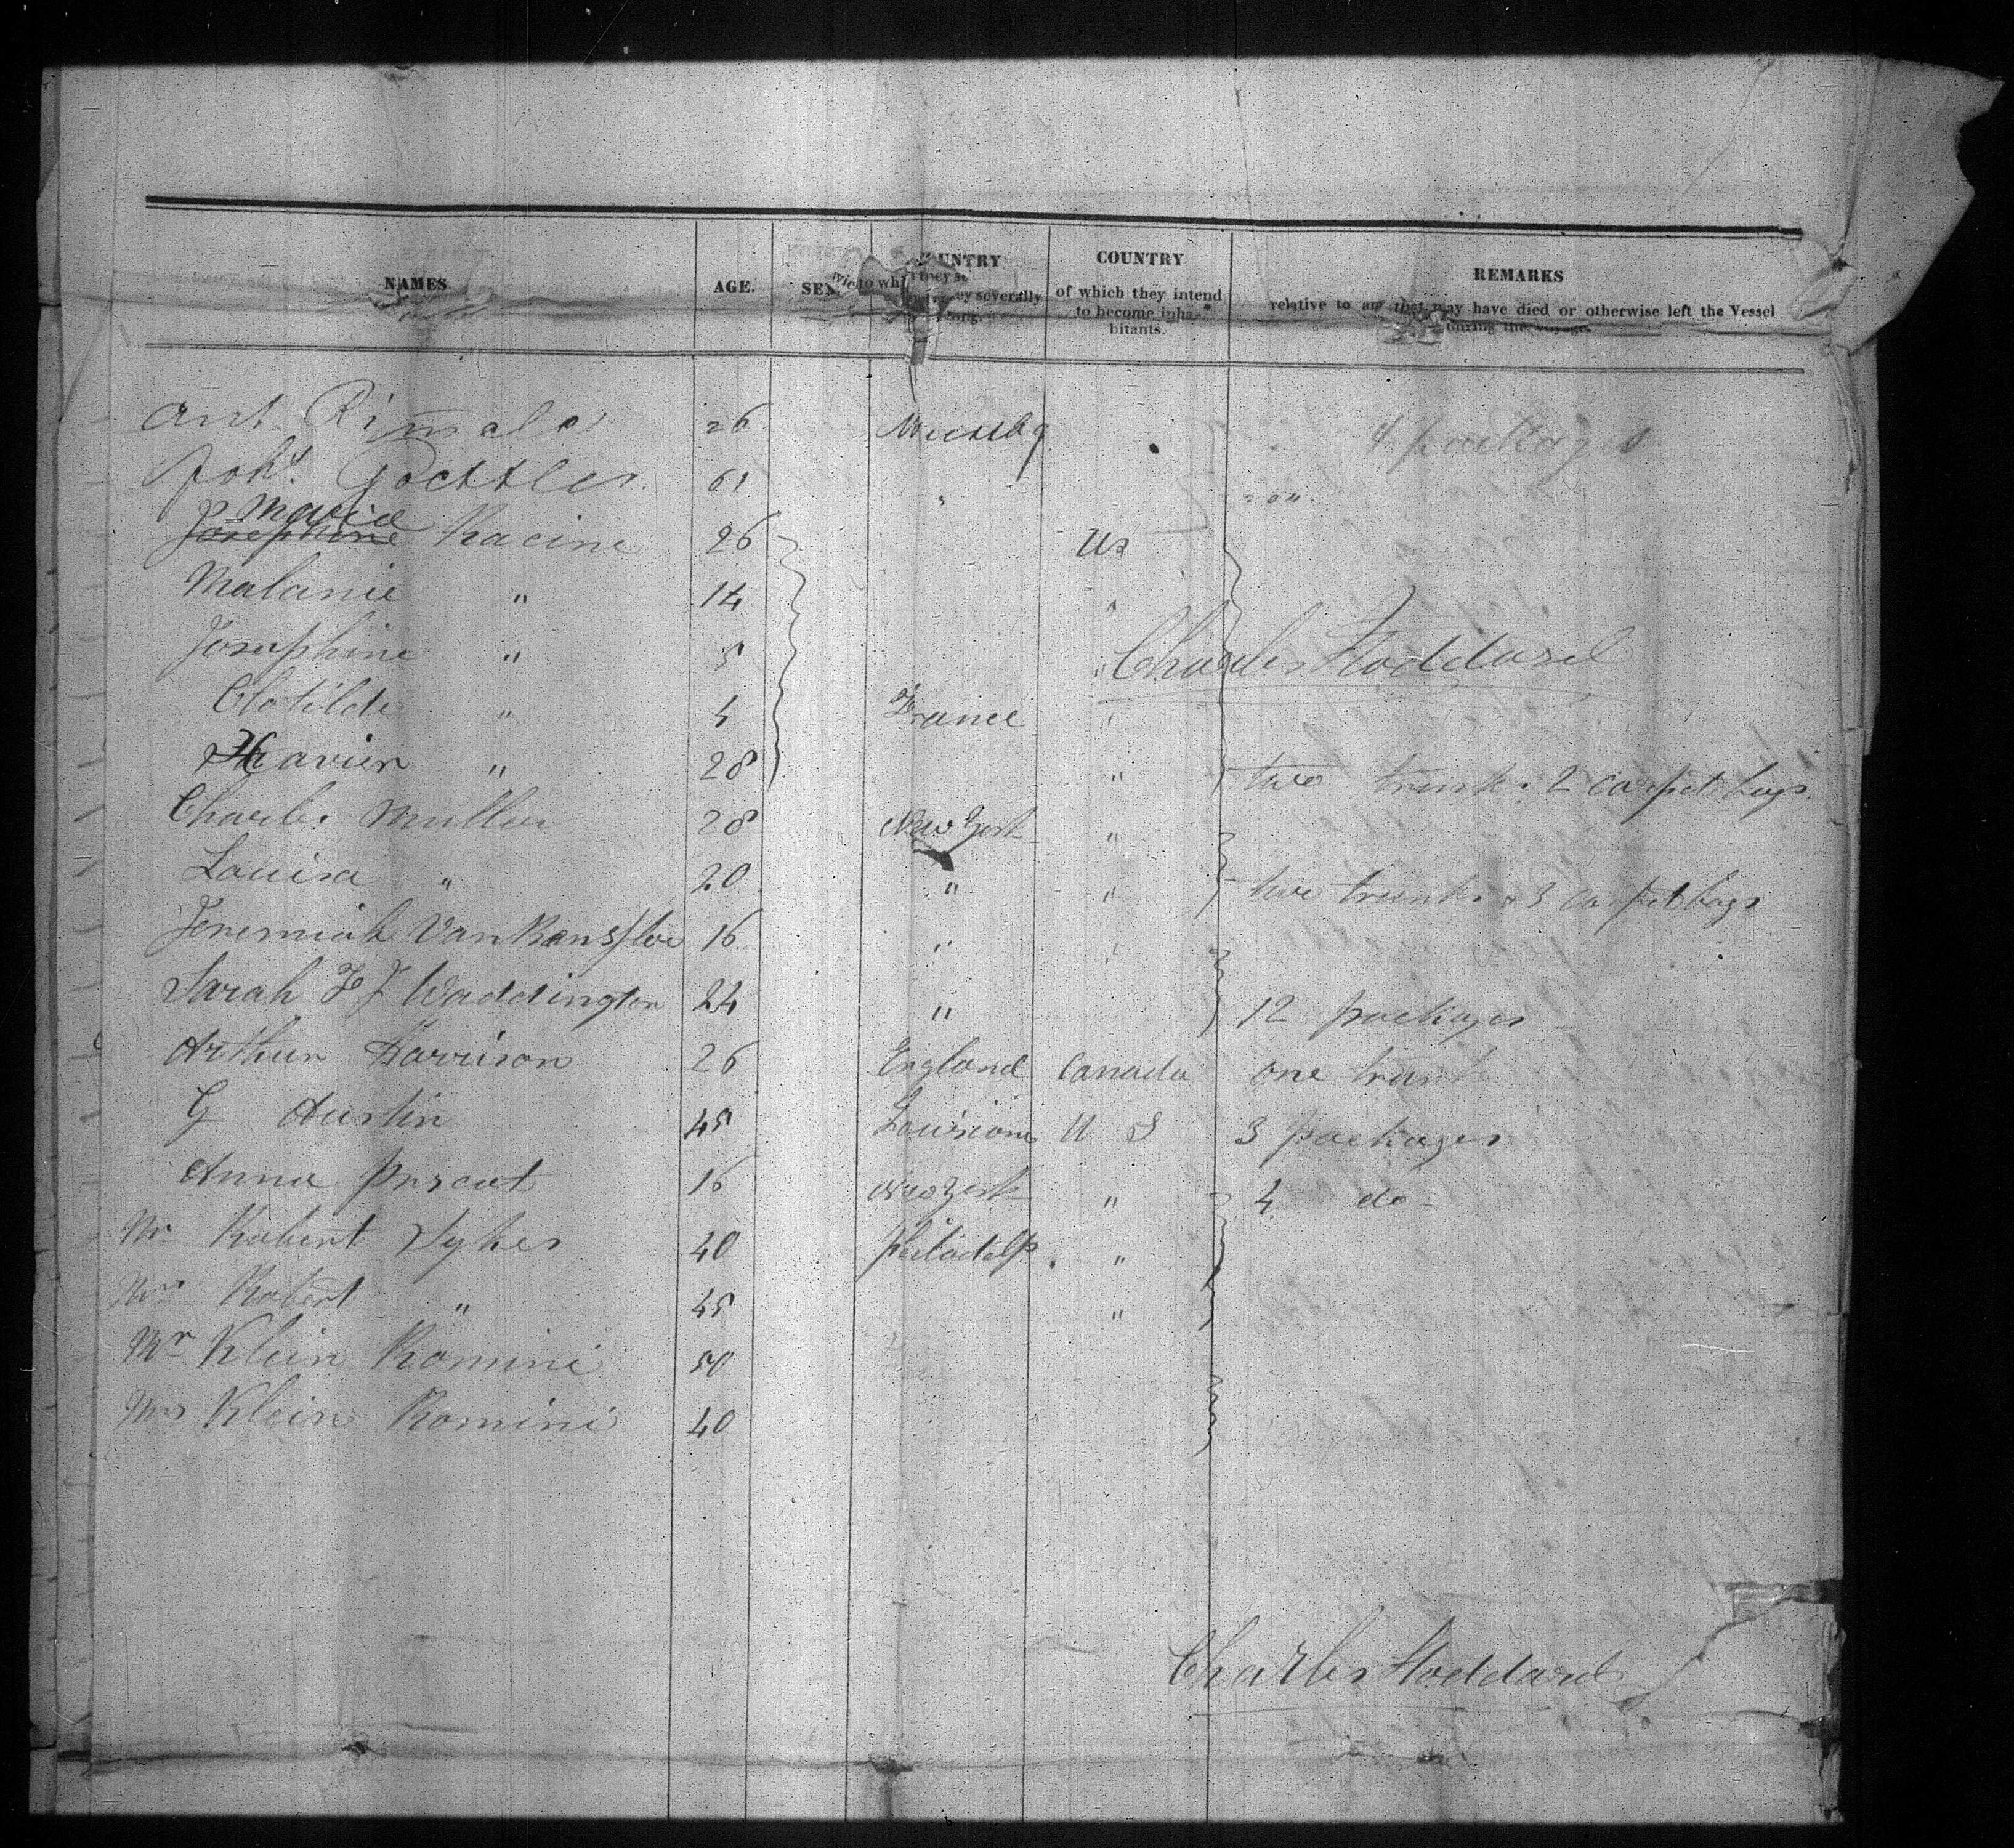 NAMES AGE. SEX COUNTRY to which they severally COUNTRY of which they intend to become inhabitants. REMARKS relative to any that may have died or otherwise left the Vessel during the voyage.
Ant 26 4 packages
Joh's 61 "
Marie
Josephine Racine 26 Us
Malanie " 14 "
Josephine " 5 "
Charles Stoddard
Clotilde " 4 France "
Xavier " 28 " two trunks 2 carpet bags
Charles Muller 28 New York "
Louisa " 20 " " two trunks & 3 carpet bags
Jeremiah Van 16 "
Sarah F J Waddington 24 " 12 packages
Arthur Harrison 26 England Canada one trunk
G Austin 45 Louisiana U S 3 packages
Anna 16 New York " 4 do
Mr Robert Sykes 40 Philadelp. "
Mrs Robert " 45 "
Mr Klein Romini 50
Mrs Klein Romini 40
Charles Stoddard